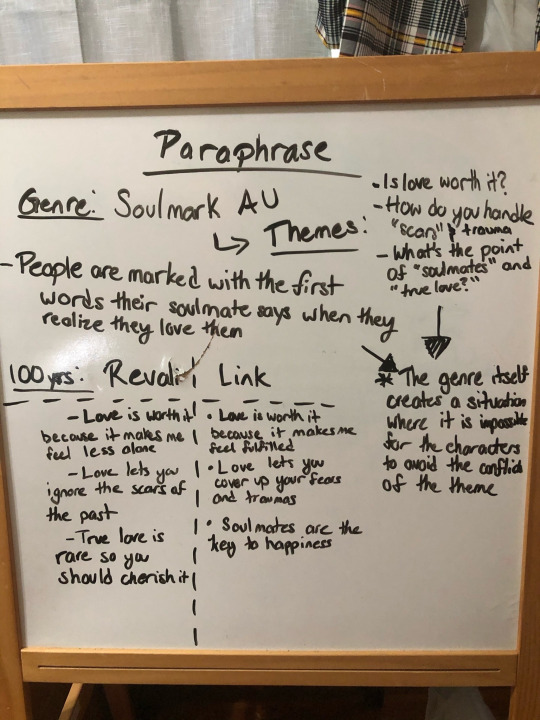 Paraphrase
Genre: Soulmark AU
↳ Themes:
- Is love worth it?
- How do you handle
"scars" & trauma
- What's the point
of "soulmates" and
"true love?"
- People are marked with the first
words their soulmate says when they
realize they love them
* The genre itself
creates a situation
where it is impossible
for the characters
to avoid the conflict
of the theme
100 yrs: Revali
- Love is worth it
because it makes me
feel less alone
- Love lets you
ignore the scars of
the past
- True love is
rare so you
should cherish it
Link
• Love is worth it
because it makes me
feel fulfilled
• Love lets you
cover up your fears
and traumas
• Soulmates are the
key to happiness